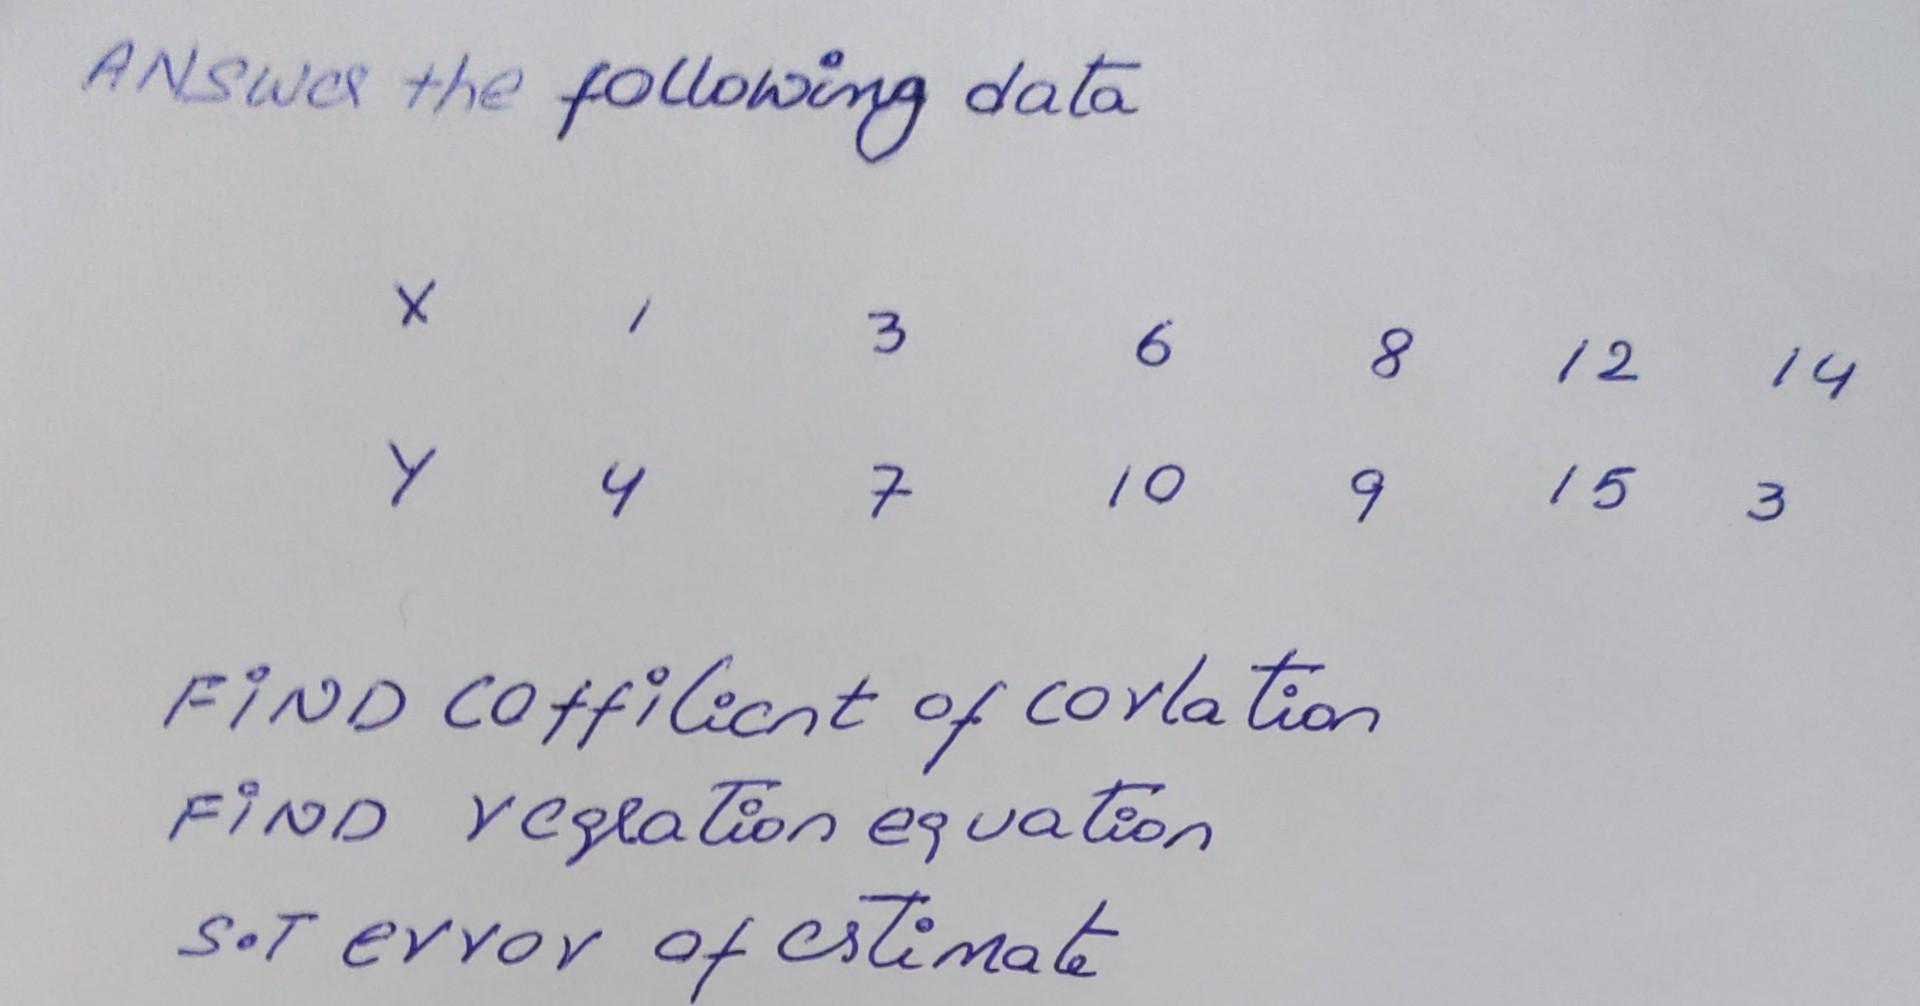 ANSwer the following data
X 1 3 6 8 12 14
Y 4 7 10 9 15 3
FIND cofficient of corlation
FIND regration equation
S.T error of estimate